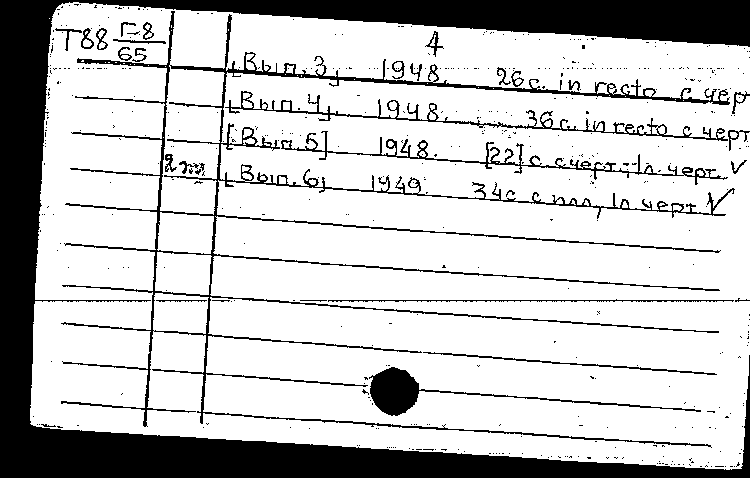 Т88 Г-8/65
4
[Вып. 3] 1948. 26 с. in recto с черт
[Вып. 4] 1948. 36 с. in recto с черт
[Вып. 5] 1948. [22] с с черт.; 1л. черт. √
[Вып. 6] 1949. 34с с илл, 1л черт √